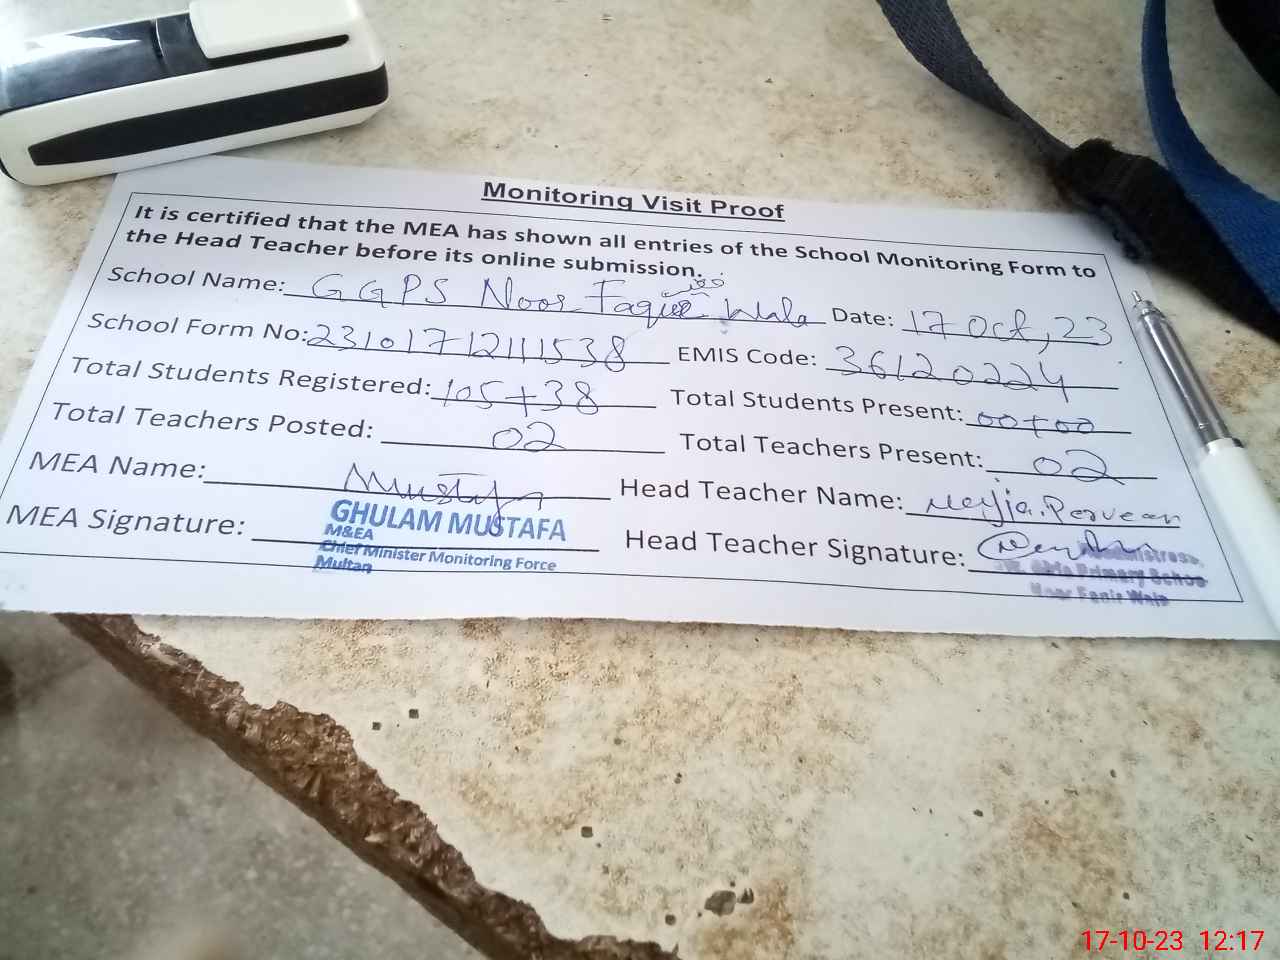 Monitoring Visit Proof
It is certified that the MEA has shown all entries of the School Monitoring Form to
the Head Teacher before its online submission.
School Name: GGPS Noor Faqir Wala Date: 17 Oct, 23
School Form No: 231017121111538 EMIS Code: 36120224
Total Students Registered: 105+38 Total Students Present: 00+00
Total Teachers Posted: 02 Total Teachers Present: 02
MEA Name: Mustafa Head Teacher Name: Perveen
MEA Signature: Head Teacher Signature:
GHULAM MUSTAFA
M&EA
Chief Minister Monitoring Force
Multan
Primary School
Wala
17-10-23 12:17